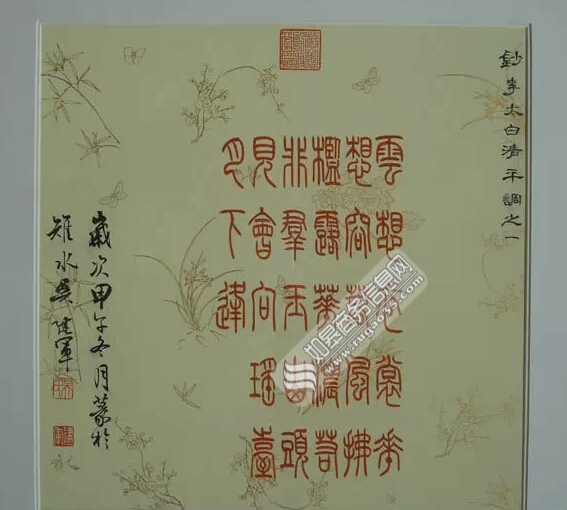 鈔李太白清平調之一
雲想衣裳花
想容春風拂
檻露華濃若
非羣玉山頭
見會向瑤臺
月下逢
歲次甲午冬月篆於
雉水吳建軍
www.rugao35.com